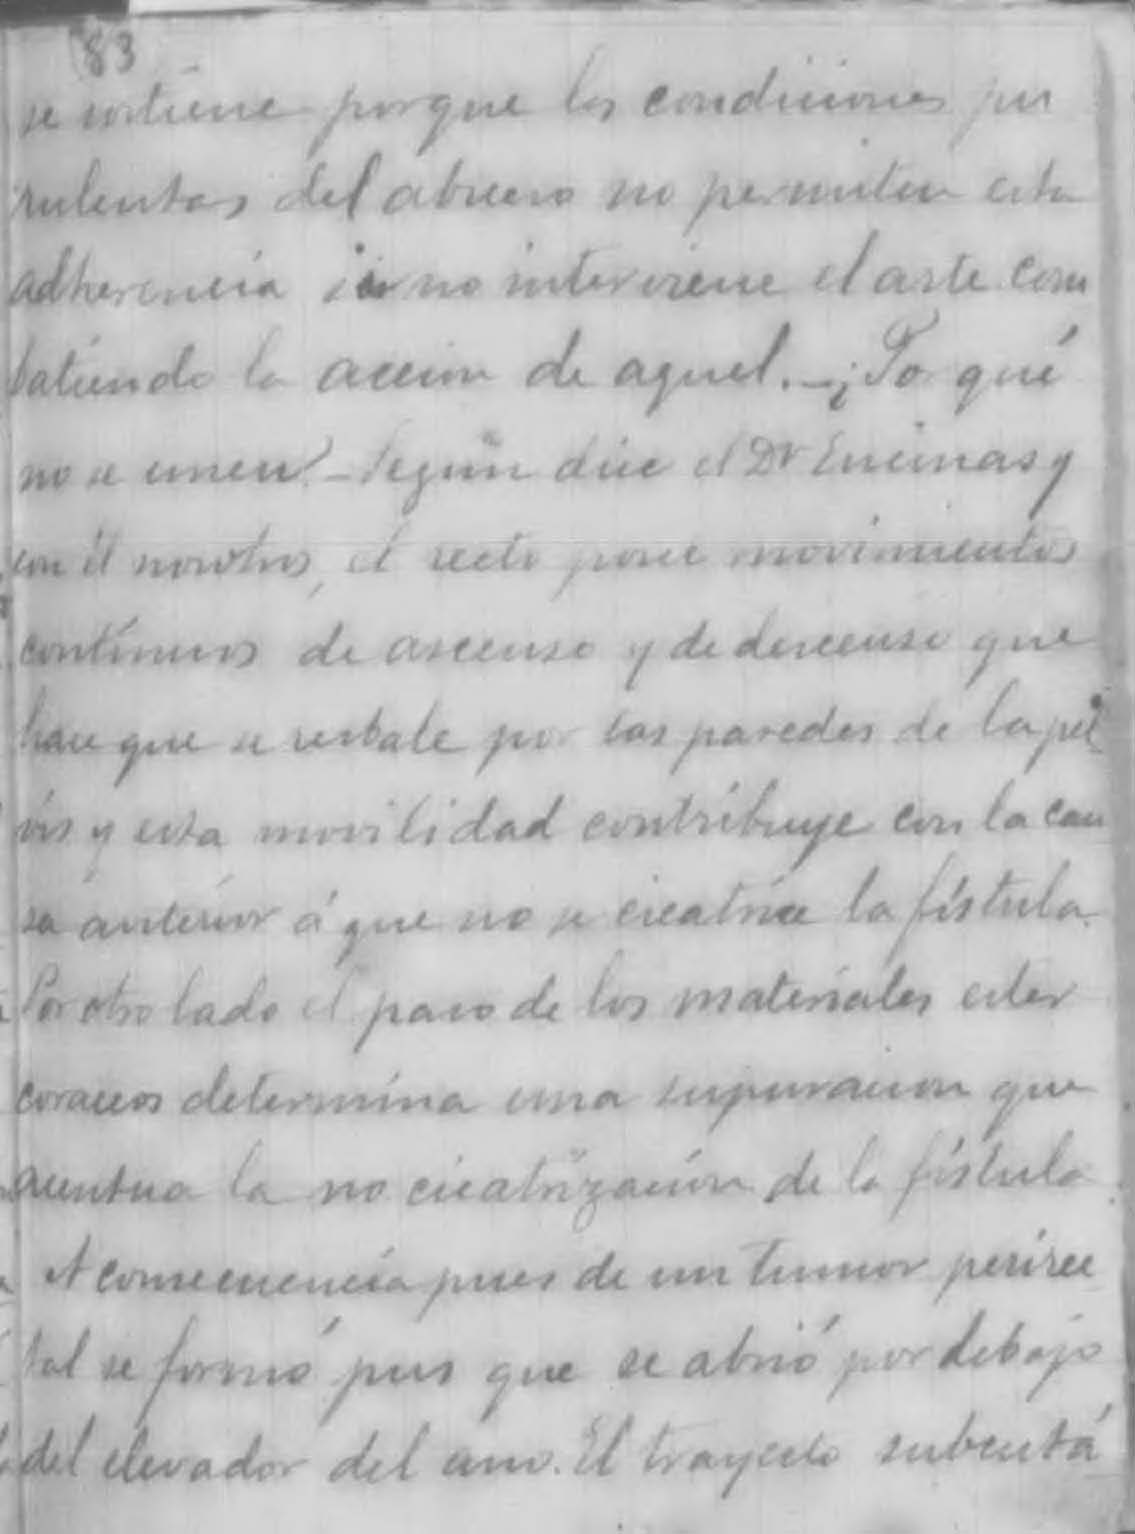 83
se sostiene porque las condiciones pu
rulentas del absceso no permiten esta
adherencia si no interviene el arte com
batiendo la accion de aquel. – ¿Por qué
no se unen? – Según dice el Dr Encinas y
con él nosotros, el recto posee movimientos
contínuos de ascenso y de descenso que
hace que se resbale por las paredes de la pel
vis y esta movilidad contribuye con la cau
sa anterior á que no se cicatrice la fístula.
Por otro lado el paso de los materiales ester
coraceos determina una supuracion que
acentua la no cicatrización de la fístula.
A consecuencia pues de un tumor perirec
tal se formó pus que se abrió por debajo
del elevador del ano. El trayecto subcutá